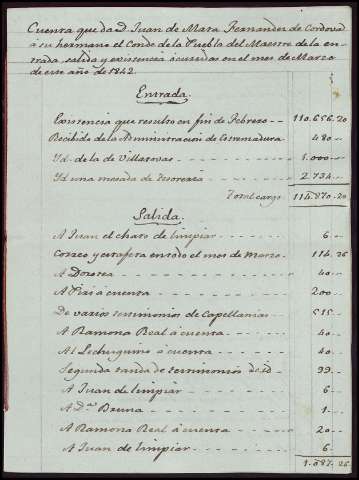 Cuenta que da Dn Juan de Mata Fernandez de Cordova
a su hermano el Conde de la Puebla del Maestre de la en-
trada, salida y existencia ocurridas en el mes de Marzo
de este año de 1842.
Entrada.
Existencia que resultó en fin de Febrero 110.656.20
Recibido de la Administracion de Estremadura 480
Yd. de la de Villatovas 1.000
Yd una mesada de Tesoreria 2.734
Total cargo 114.870.20
Salida.
A Juan el chato de limpiar 6
Correo y estafeta en todo el mes de Marzo 114.26
A Dorotea 40
A Piri á cuenta 200
De varios testimonios de Capellanias 515
A Ramona Real á cuenta 40
Al Lechuguino á cuenta 40
Segunda tanda de testimonios de id 99
A Juan de limpiar 6
A Da. Bruna 1
A Ramona Real á cuenta 20
A Juan de limpiar 6
1.087.26